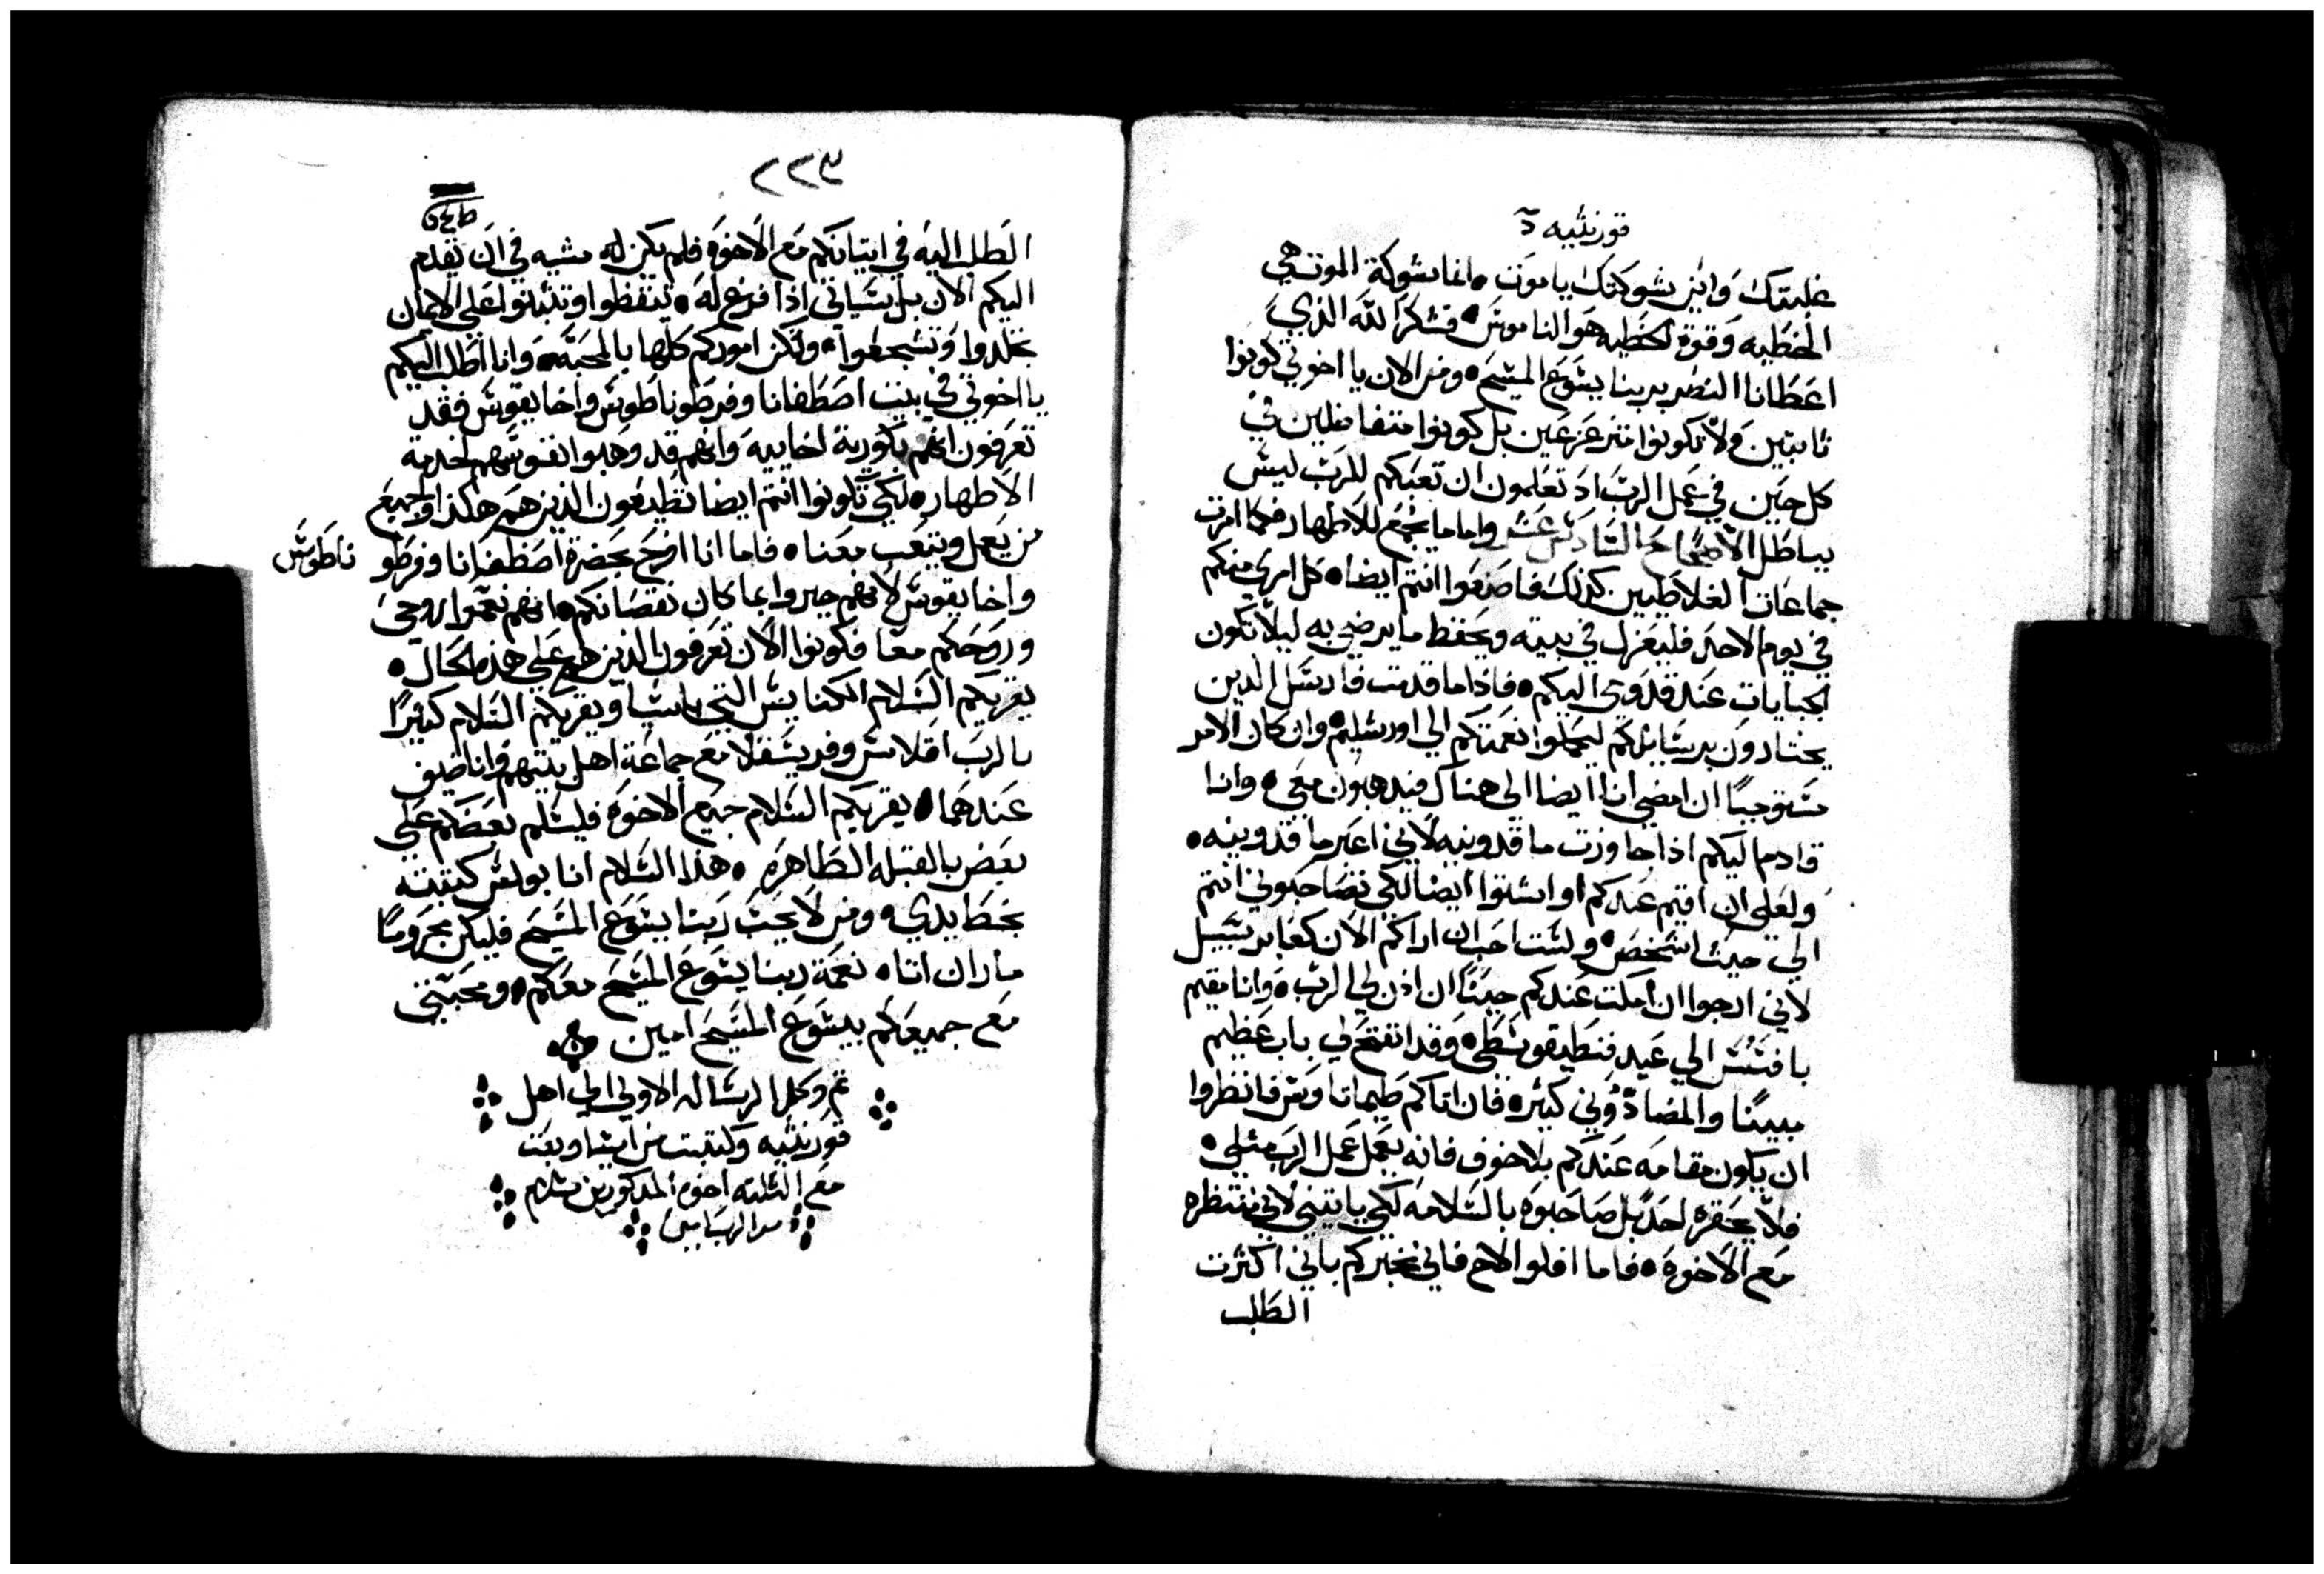 قورنثيه
غلبتك واين شوكتك يا موت • انما شوكة الموت هي
الخطيه وقوة الخطيه هو الناموس • فشكرا لله الذي
اعطانا النصر بربنا يسوع المسيح • ومن الان يا اخوتي كونوا
ثابتين ولا تكونوا متزعزعين بل كونوا متفاضلين في
كل حين في عمل الرب اذ تعلمون ان تعبكم للرب ليس
بباطل الاصحاح السادس عشر واما ما يجمع للاطهار فكما امرت
جماعات الغلاطيين كذلك فاصنعوا انتم ايضا • كل امرئ منكم
في يوم الاحد فليعزل في بيته ويحفظ ما يرضي به ليلا تكون
الجبايات عند قدومي اليكم • فاذا ما قدمت فارسل الذين
يختارون برسايلكم ليحملوا نعمتكم الي اورشليم • وان كان الامر
مستوجبا ان امضي انا ايضا الي هناك فيذهبون معي • وانا
قادم اليكم اذا جاوزت ماقدونيه لاني اعبر ماقدونيه •
ولعلي ان اقيم عندكم او اشتوا ايضا لكي تصاحبوني انتم
الي حيث اشخص • ولست احب ان اراكم الان كعابر سبيل
لاني ارجوا ان امكث عندكم حينا ان اذن لي الرب • وانا مقيم
بافسس الي عيد فنطيقوسطي • وقد انفتح لي باب عظيم
مبينا والمضادوني كثيره فان اتاكم طيماتاوس فانظروا
ان يكون مقامه عندكم بلا خوف فانه يعمل عمل الرب مثلي •
فلا يحقره احد بل صاحبوه بالسلامه لكي ياتيني لاني منتظره
مع الاخوة • فاما افلوا الاخ فاني مخبركم باني اكثرت
الطلب
٢٢٣
الطلب اليه في اتيانكم مع الاخوة فلم يكن له مشيه في ان يقدم
اليكم الان بل سياتي اذا فرغ له • تيقظوا وتثبتوا علي الايمان
تجلدوا وتشجعوا • ولتكن اموركم كلها بالمحبة • وانا اطلب اليكم
يا اخوتي في بيت اصطفانا وفرطوناطوس واخايقوس فقد
تعرفون انهم باكورية اخاييه وانهم قد وهبوا نفوسهم لخدمة
الاطهار • لكي تكونوا انتم ايضا تطيعون الذين هم هكذا ولجميع
من يعمل ويتعب معنا • فاما انا افرح بحضرة اصطفانا وفرطو ناطوس
واخايقوس لانهم جبروا بما كان نقصانكم • انهم نعموا روحي
وروحكم معا فكونوا الان تعرفون الذين هم علي هذه الحال •
يقريكم السلام الكنايس التي باسيا ويقريكم السلام كثيرا
بالرب اقلاس وفريسقلا مع جماعة اهل بيتهم وانا ضيف
عندهما • يقريكم السلام جميع الاخوة فليسلم بعضكم علي
بعض بالقبله الطاهره • هذا السلام انا بولس كتبته
بخط يدي • ومن لا يحب ربنا يسوع المسيح فليكن محروما
ماران اتا • نعمة ربنا يسوع المسيح معكم • ومحبتي
مع جميعكم بيسوع المسيح امين
تم وكمل الرساله الاولي الي اهل
قورنثيه وكتبت من اسيا وبعت
مع الثلثه اخوه المذكورين بسلام
من الرب امين